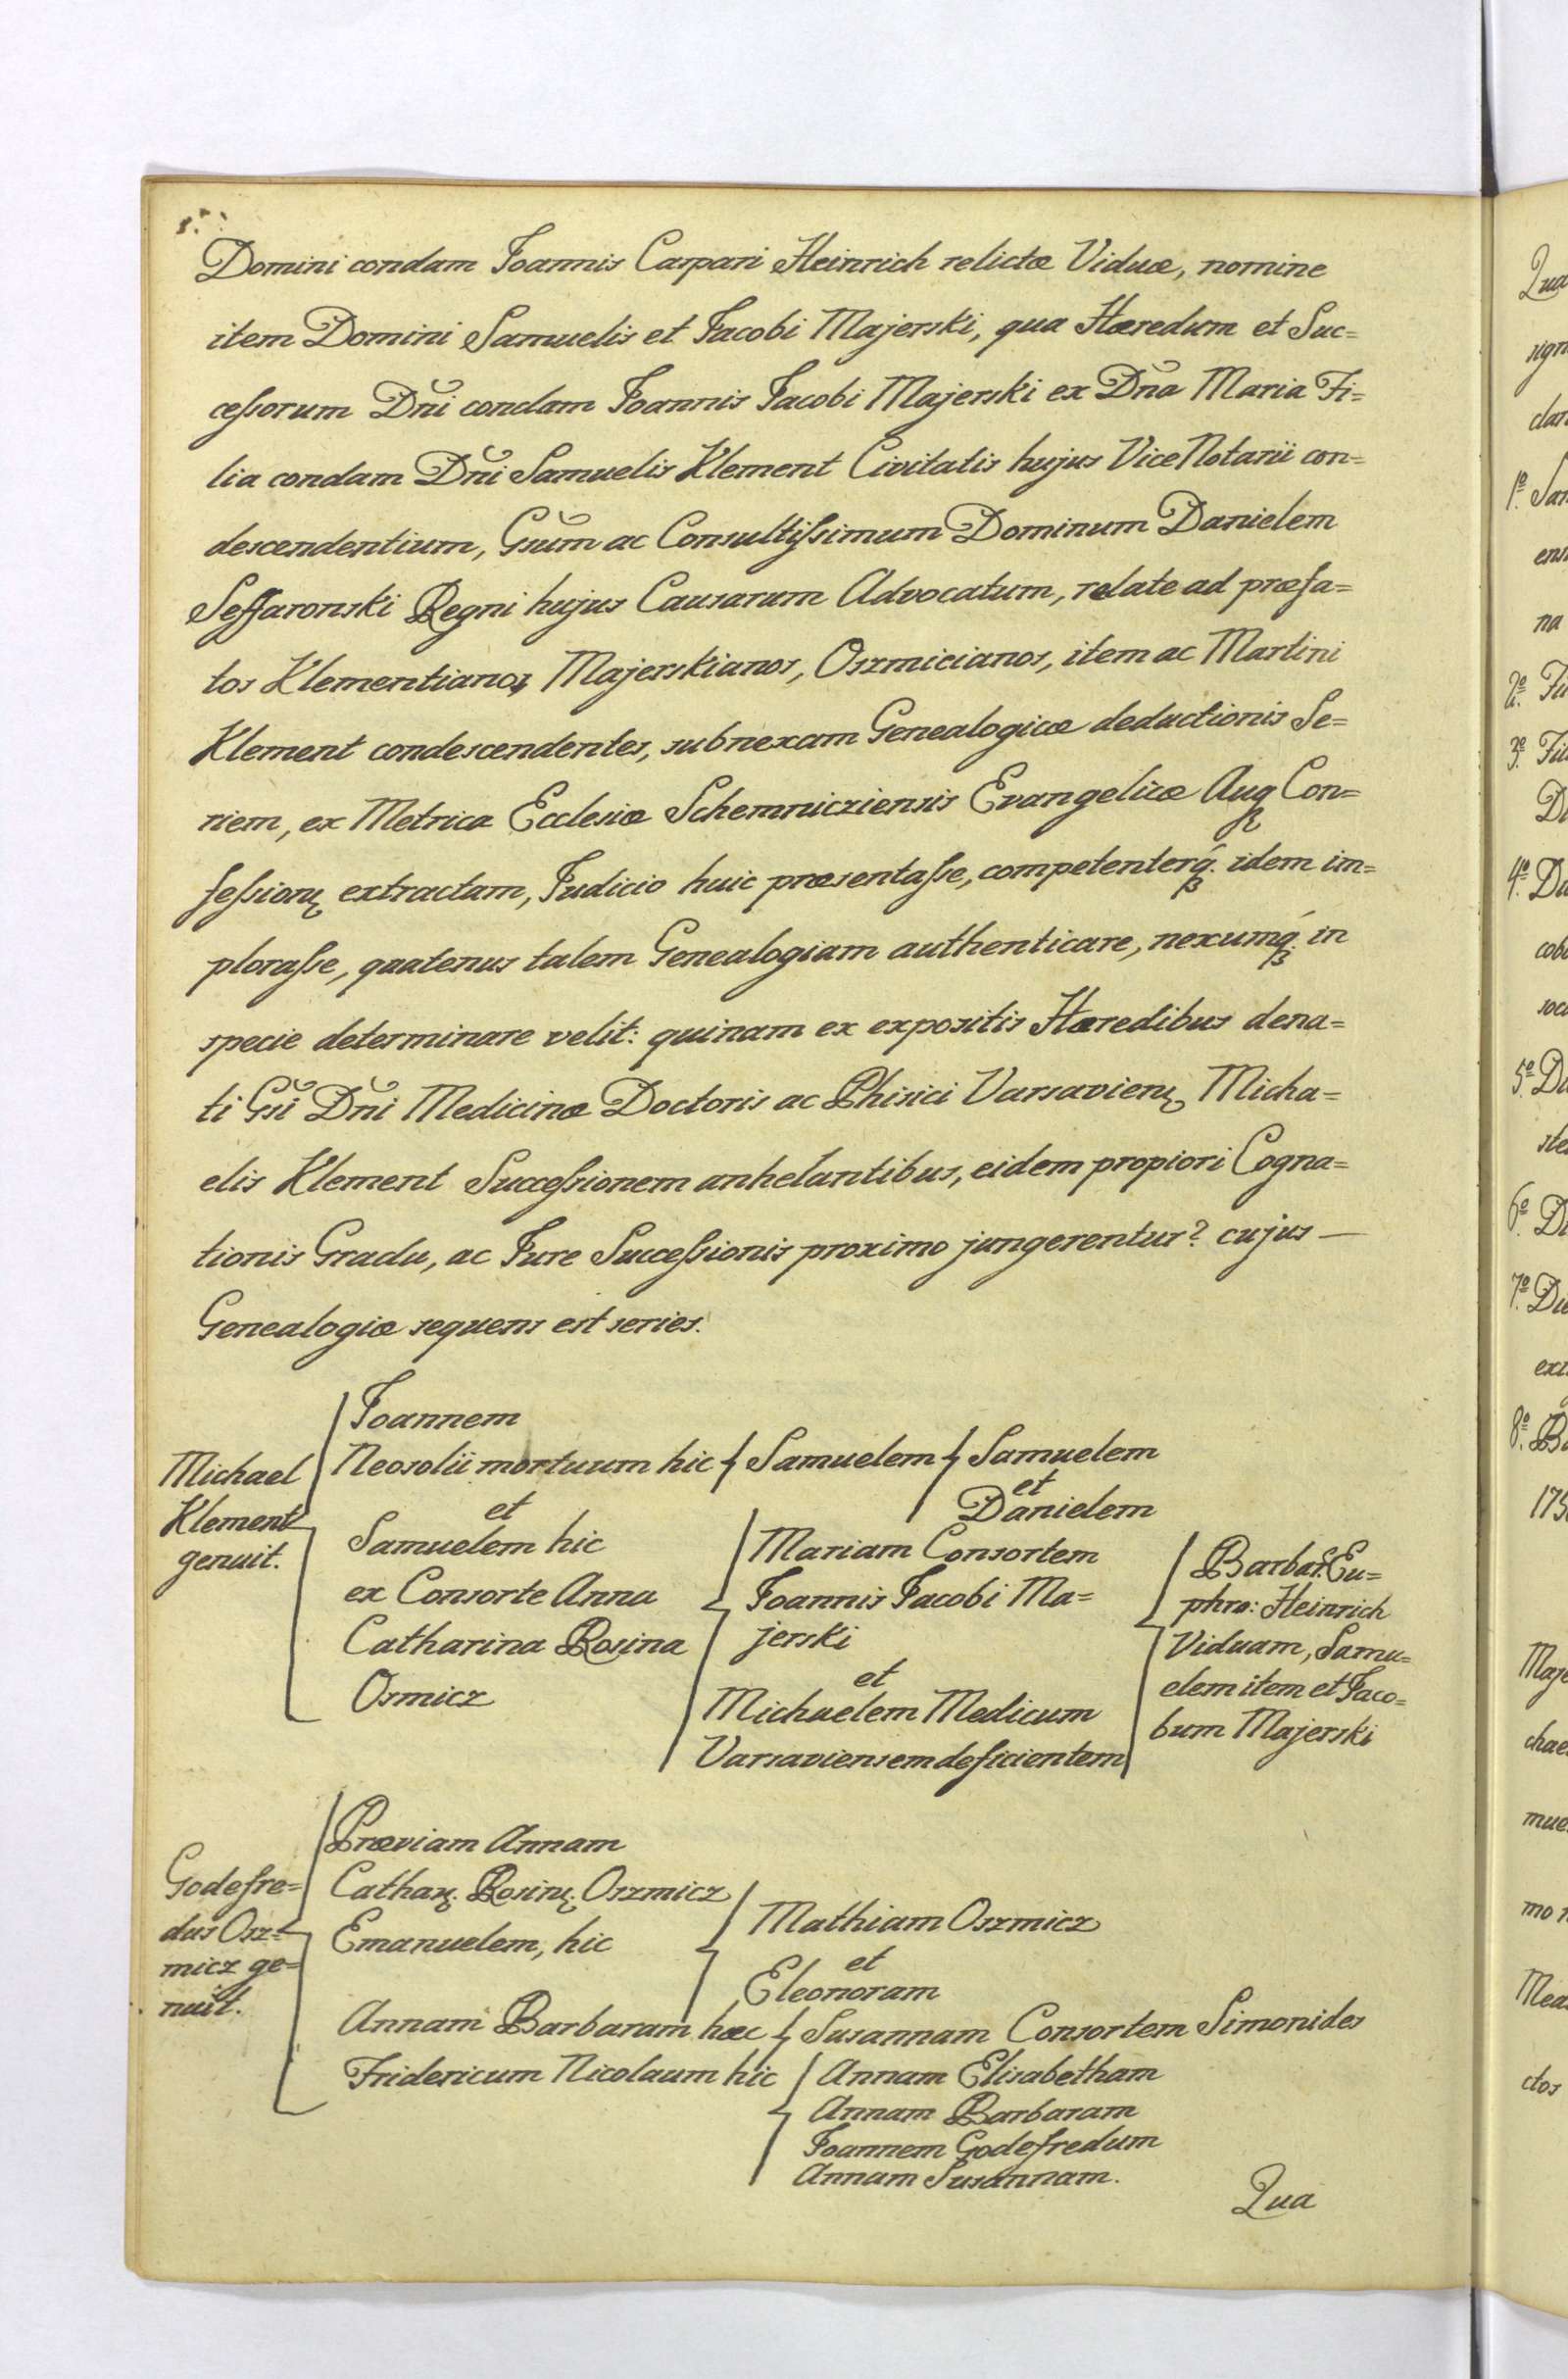 Domini condam Joannis Caspari Heinrich relictæ Viduæ, nomine
item Domini Samuelis et Jacobi Majerski, qua Hæredum et Suc=
ceſsorum Dn̄i condam Joannis Jacobi Majerski ex Dn̄a Maria Fi=
lia condam Dn̄i Samuelis Klement Civitatis hujus ViceNotarii con=
descendentium, Gsūm ac Consultiſsimum Dominum Danielem
Seffaronski Regni hujus Causarum Advocatum, relate ad præfa=
tos Klementianos, Majerskianos, Oszmicianos, item ac Martini
Klement condescendentes, subnexam Genealogicæ deductionis Se=
riem, ex Metrica Ecclesiæ Schemnicziensis Evangelicæ Aug Con=
feſsionꝭ extractam, Judicio huic præsentaſse, competenterq́. idem im=
ploraſse, quatenus talem Genealogiam authenticare, nexumq́. in
specie determinare velit: quinam ex expositis Hæredibus dena=
ti Gsī Dn̄i Medicinæ Doctoris ac Phisici Varsavienꝭ Micha=
elis Klement Succeſsionem anhelantibus, eidem propiori Cogna=
tionis Gradu, ac Jure Succeſsionis proximo jungerentur? cujus —
Genealogiæ sequens est series.
Michael
Klement
genuit.
Joannem
Neosolii mortuum hic
et
Samuelem hic
ex Consorte Anna
Catharina Rosina
Osmicz
Samuelem
Samuelem
et
Danielem
Mariam Consortem
Joannis Jacobi Ma=
jerski
et
Michaelem Medicum
Varsaviensem deficientem
Barbar: Eu=
phro: Heinrich
Viduam, Samu=
elem item et Jaco=
bum Majerski
Godefre=
dus Osz=
micz ge=
nuit.
Præviam Annam
Catharꝭ. Rosinꝭ. Oszmicz
Emanuelem, hic
Mathiam Oszmicz
et
Eleonoram
Annam Barbaram hæc
Susannam Consortem Simonides
Fridericum Nicolaum hic
Annam Elisabetham
Annam Barbaram
Joannem Godefredum
Annam Susannam.
Qua